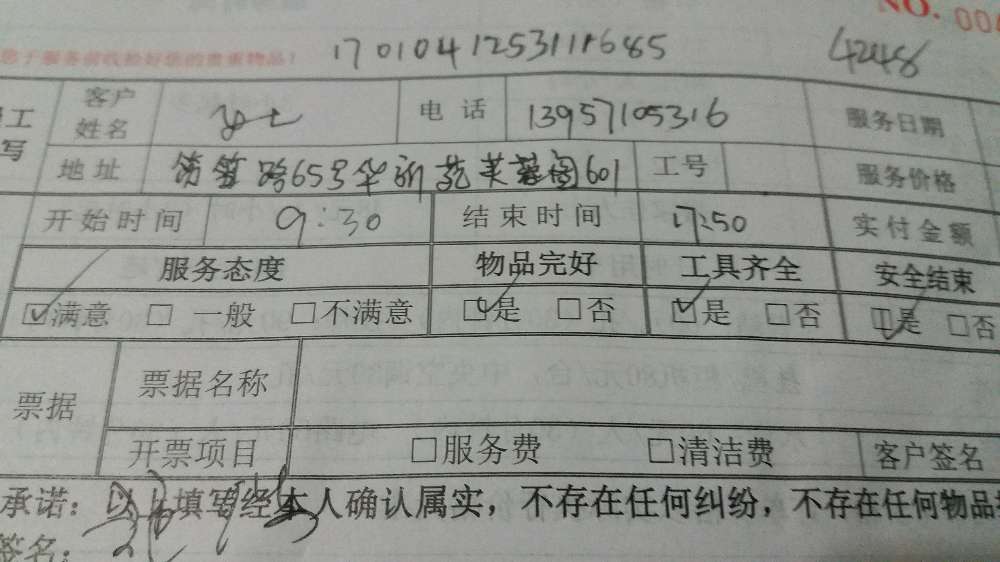 NO. 004
您于服务前收捡好您的贵重物品！ 1701041253111685 4248
员工
填写
客户姓名 电话 13957105316 服务日期
地址 路65号华 苑芙蓉阁601 工号 服务价格
开始时间 9:30 结束时间 17:50 实付金额
服务态度 物品完好 工具齐全 安全结束
☑满意 □一般 □不满意 ☑是 □否 ☑是 □否 ☑是 □否
票据 票据名称
开票项目 □服务费 □清洁费 客户签名
承诺：以上填写经本人确认属实，不存在任何纠纷，不存在任何物品
签名：